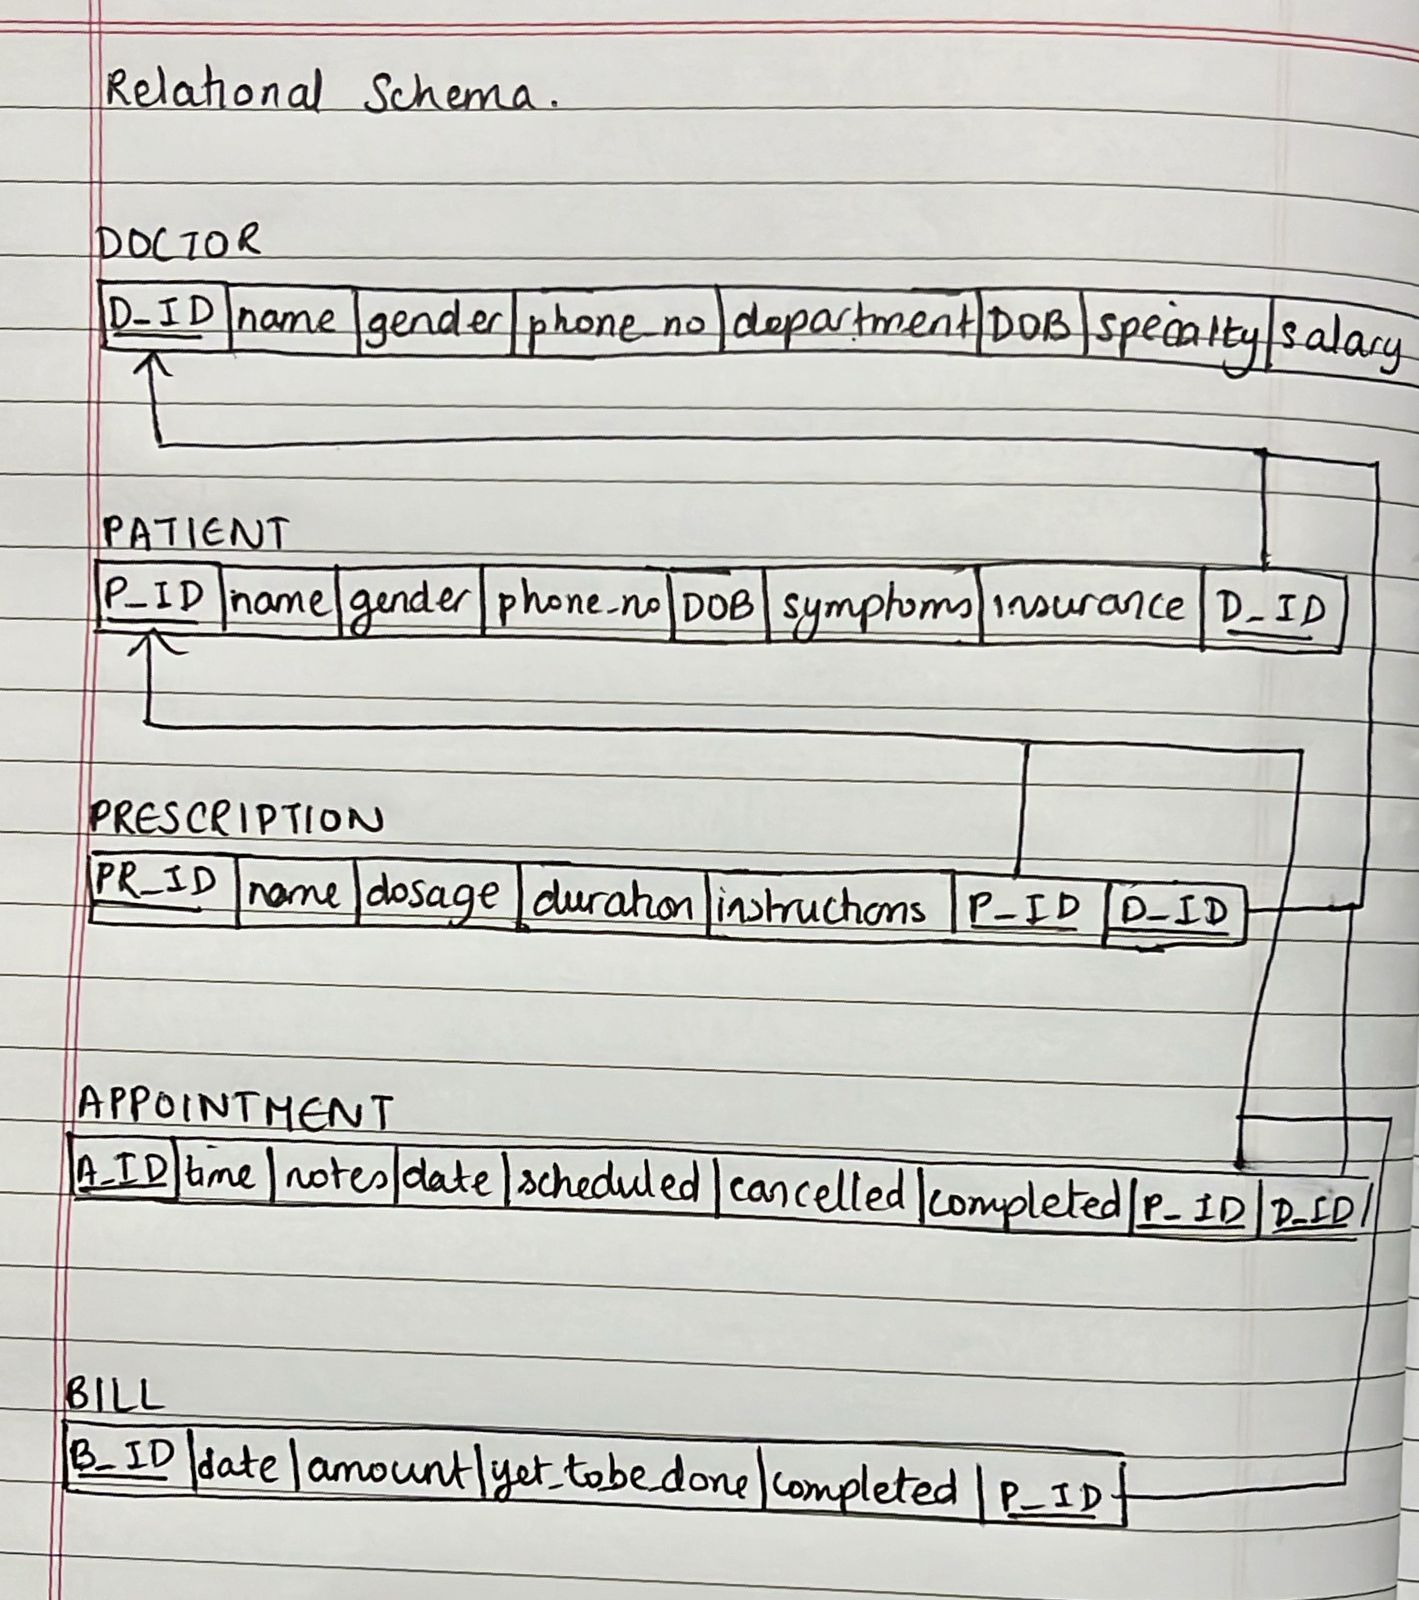 Relational Schema.
DOCTOR
D_ID name gender phone_no department DOB specialty salary
PATIENT
P_ID name gender phone_no DOB symptoms insurance D_ID
PRESCRIPTION
PR_ID name dosage duration instructions P_ID D_ID
APPOINTMENT
A_ID time notes date scheduled cancelled completed P_ID D_ID
BILL
B_ID date amount yet_tobe_done completed P_ID